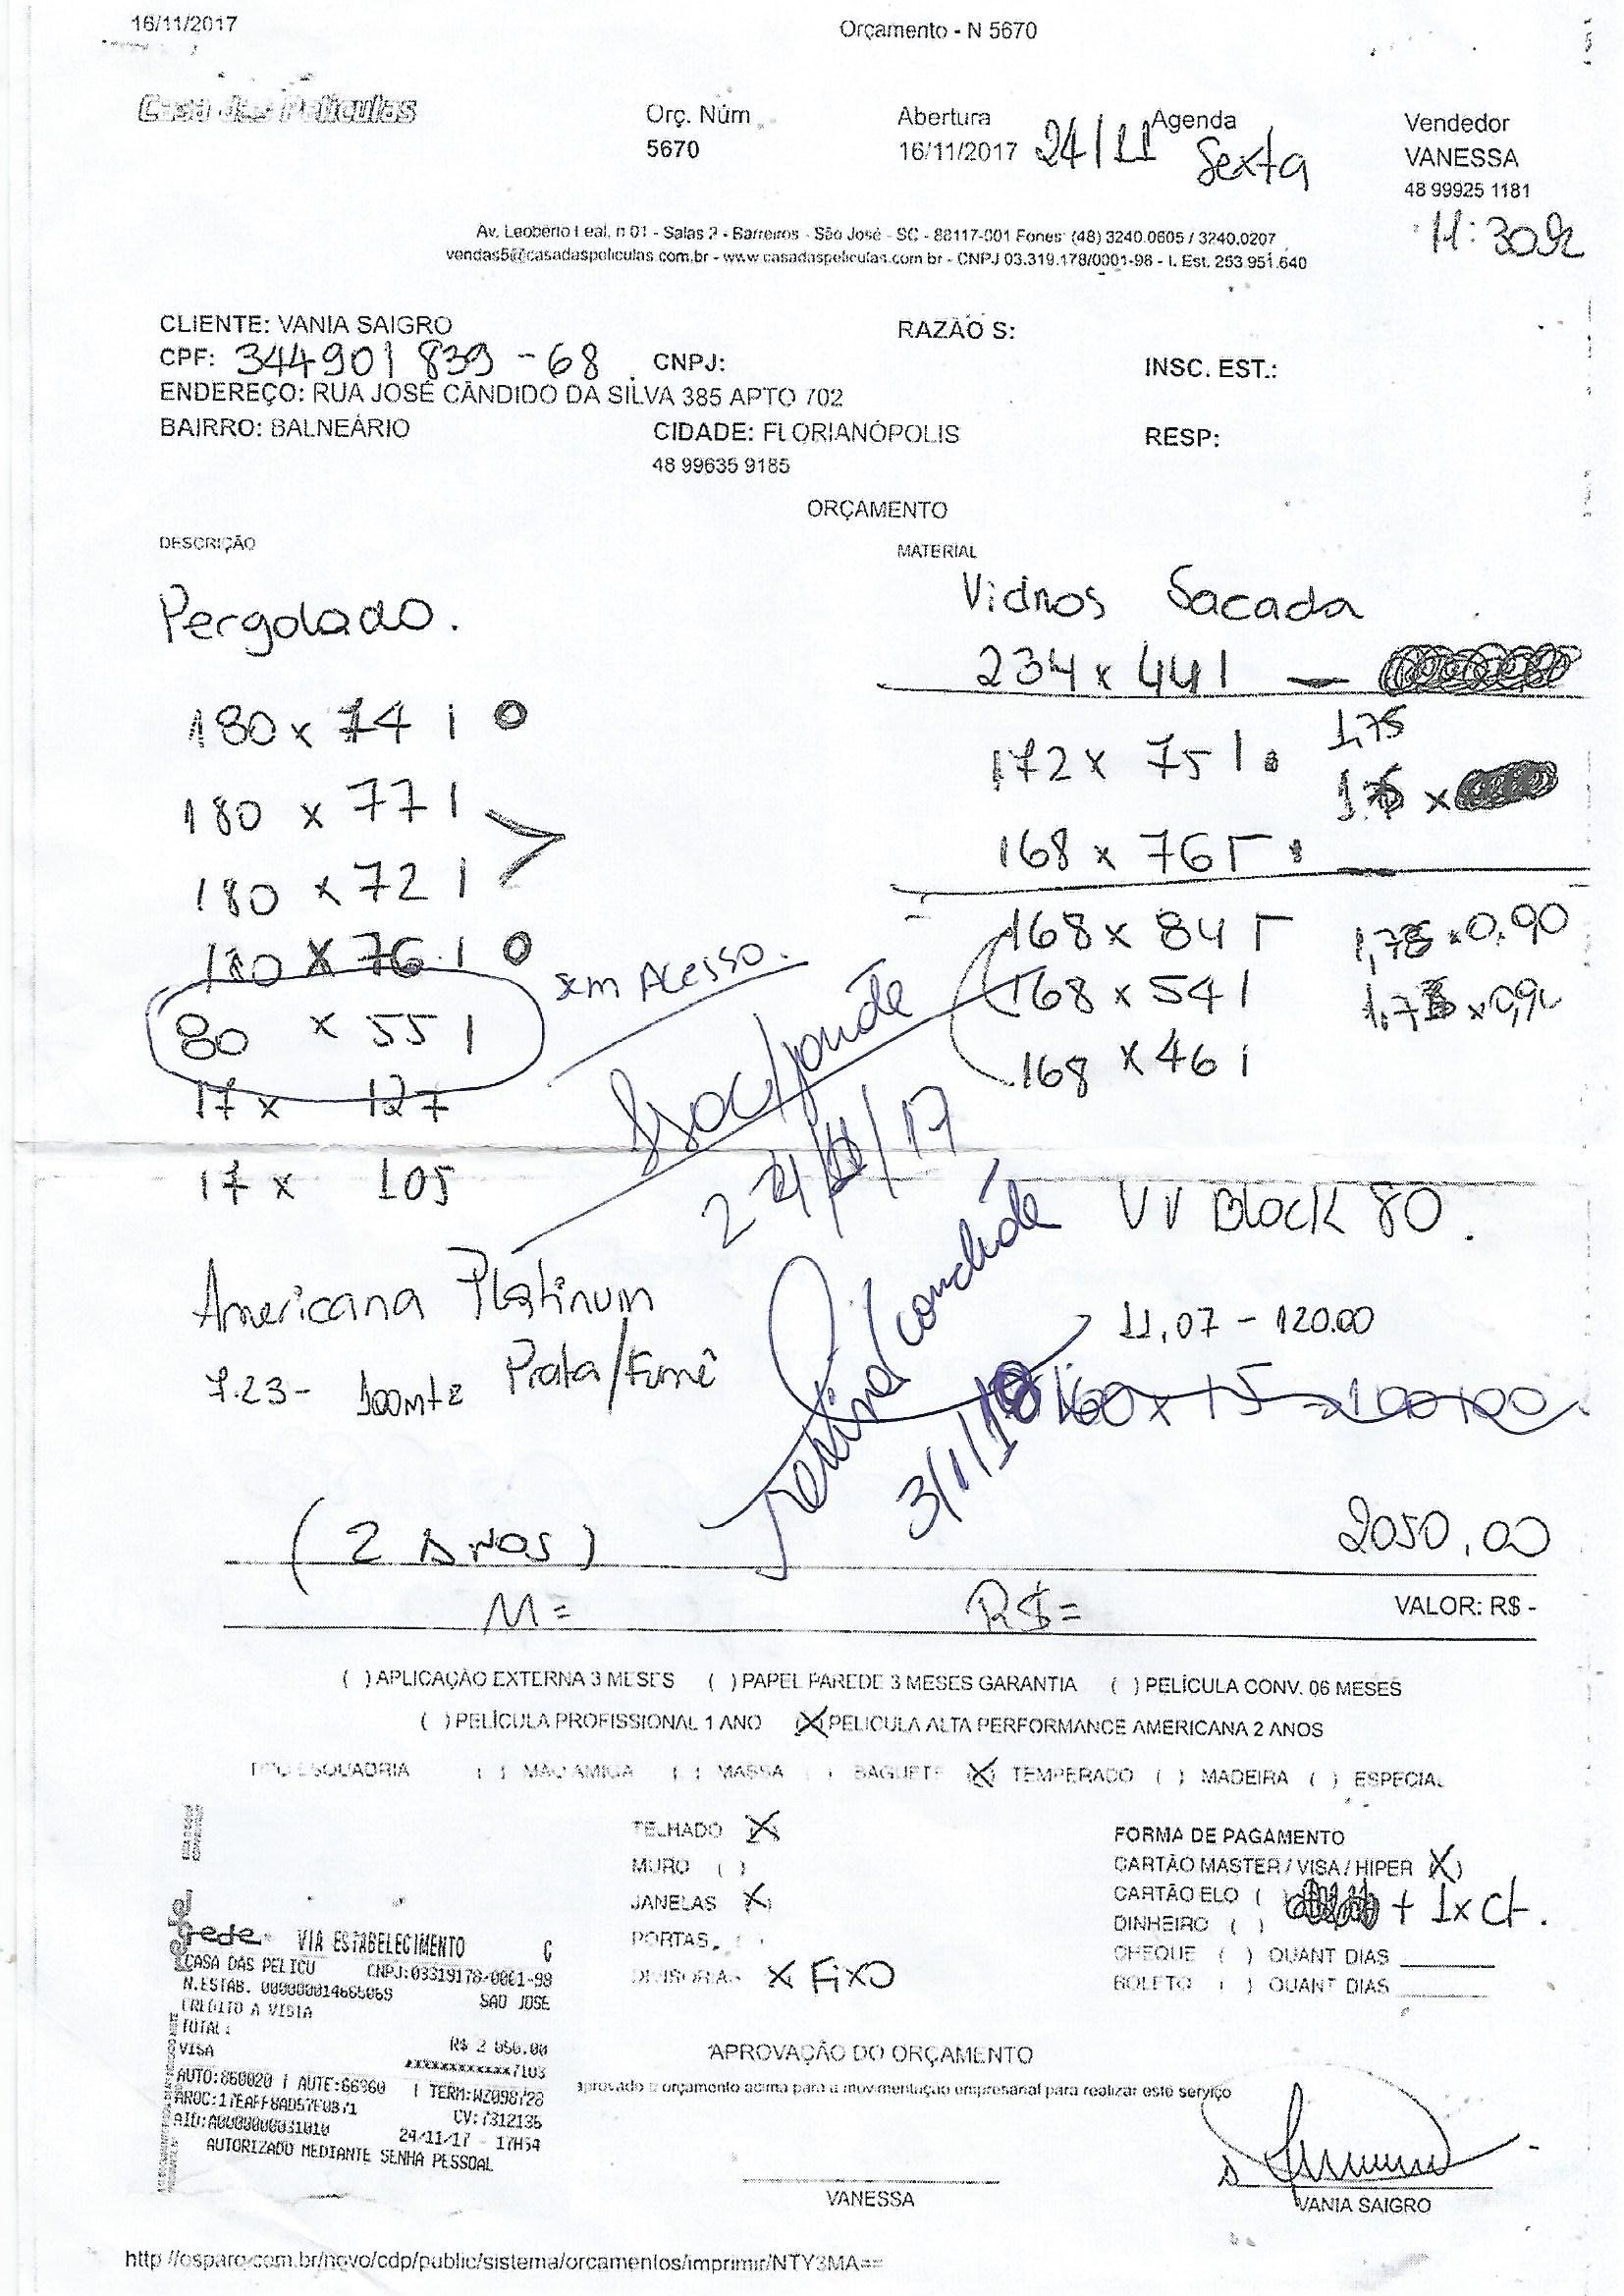 16/11/2017 Orçamento - N 5670
Casa das Películas
Orç. Núm Abertura Agenda Vendedor
5670 16/11/2017 24/11 Sexta VANESSA
48 99925 1181
11:30
Av. Leoberto Leal, n 01 - Salas 2 - Barreiros - São José - SC - 88117-001 Fones: (48) 3240.0605 / 3240.0207
vendas5@casadaspeliculas.com.br - www.casadaspeliculas.com br - CNPJ 03.319.178/0001-98 - I. Est. 253.951.640
CLIENTE: VANIA SAIGRO RAZÃO S:
CPF: 344901839-68 CNPJ: INSC. EST.:
ENDEREÇO: RUA JOSÉ CÂNDIDO DA SILVA 385 APTO 702
BAIRRO: BALNEÁRIO CIDADE: FLORIANÓPOLIS RESP:
48 99635 9185
ORÇAMENTO
DESCRIÇÃO MATERIAL
Pergolado. Vidros Sacada
234 x 44 1 -
180 x 74 1 0
1,75
172 x 75 1
180 x 77 1
168 x 76
180 x 72 1
168 x 84 1,75 x 0,90
x 76 1 0
sem Acesso.
168 x 54 1
80 x 55 1
168 x 46 1
17 x 127
17 x 105
24/11/17
UV Block 80.
Americana Platinum
Prata/Fumê
11,07 - 120.00
7.23- 100mt2
concluída
3/1/18
160 x 15
(2 Anos) 2050,00
M= R$= VALOR: R$ -
( ) APLICAÇÃO EXTERNA 3 MESES ( ) PAPEL PAREDE 3 MESES GARANTIA ( ) PELÍCULA CONV. 06 MESES
( ) PELÍCULA PROFISSIONAL 1 ANO (X) PELICULA ALTA PERFORMANCE AMERICANA 2 ANOS
TIPO ESQUADRIA ( ) MAO AMIGA ( ) MASSA ( ) BAGUETE (X) TEMPERADO ( ) MADEIRA ( ) ESPECIAL
TELHADO (X)
MURO ( )
JANELAS (X)
PORTAS ( )
DIVISORIAS X Fixo
FORMA DE PAGAMENTO
CARTÃO MASTER / VISA / HIPER (X)
CARTÃO ELO ( ) + 1x Ct.
DINHEIRO ( )
CHEQUE ( ) QUANT DIAS
BOLETO ( ) QUANT DIAS
rede
VIA ESTABELECIMENTO C
CASA DAS PELICU CNPJ:03319178/0001-98
N.ESTAB. 000000014665069 SAO JOSE
CREDITO A VISTA
TOTAL: R$ 2 050.00
VISA ************7103
AUTO:860020 AUTE:66960 TERM:WZ098728
CV:7312135
AID:A0000000031010 24/11/17 - 17H54
AUTORIZADO MEDIANTE SENHA PESSOAL
APROVAÇÃO DO ORÇAMENTO
aprovado o orçamento acima para a movimentação empresarial para realizar este serviço
VANESSA VANIA SAIGRO
http://osparc.com.br/novo/cdp/public/sistema/orcamentos/imprimir/NTY3MA==